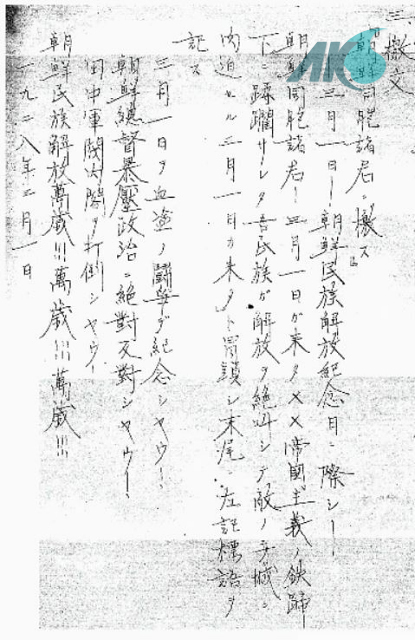 三檄文
朝鮮同胞諸君ニ檄ス
三月一日ー朝鮮民族解放紀念日ニ際シー
朝鮮同胞諸君ー三月一日ガ来タ××帝國主義ノ鉄蹄
下ニ蹂躙サレタ吾民族ガ解放ヲ絶叫シテ敵ノ牙城ニ
肉迫セル三月一日ガ来タト冒頭シ末尾ニ左記標語ヲ
記ス
三月一日ヲ血塗ノ鬪争デ紀念シヤウー、
朝鮮總督暴壓政治ニ絶對反對シヤウー、
田中軍閥内閣ヲ打倒シヤウー
朝鮮民族解放萬歳!!!萬歳!!!萬歳!!!
一九二八年三月一日